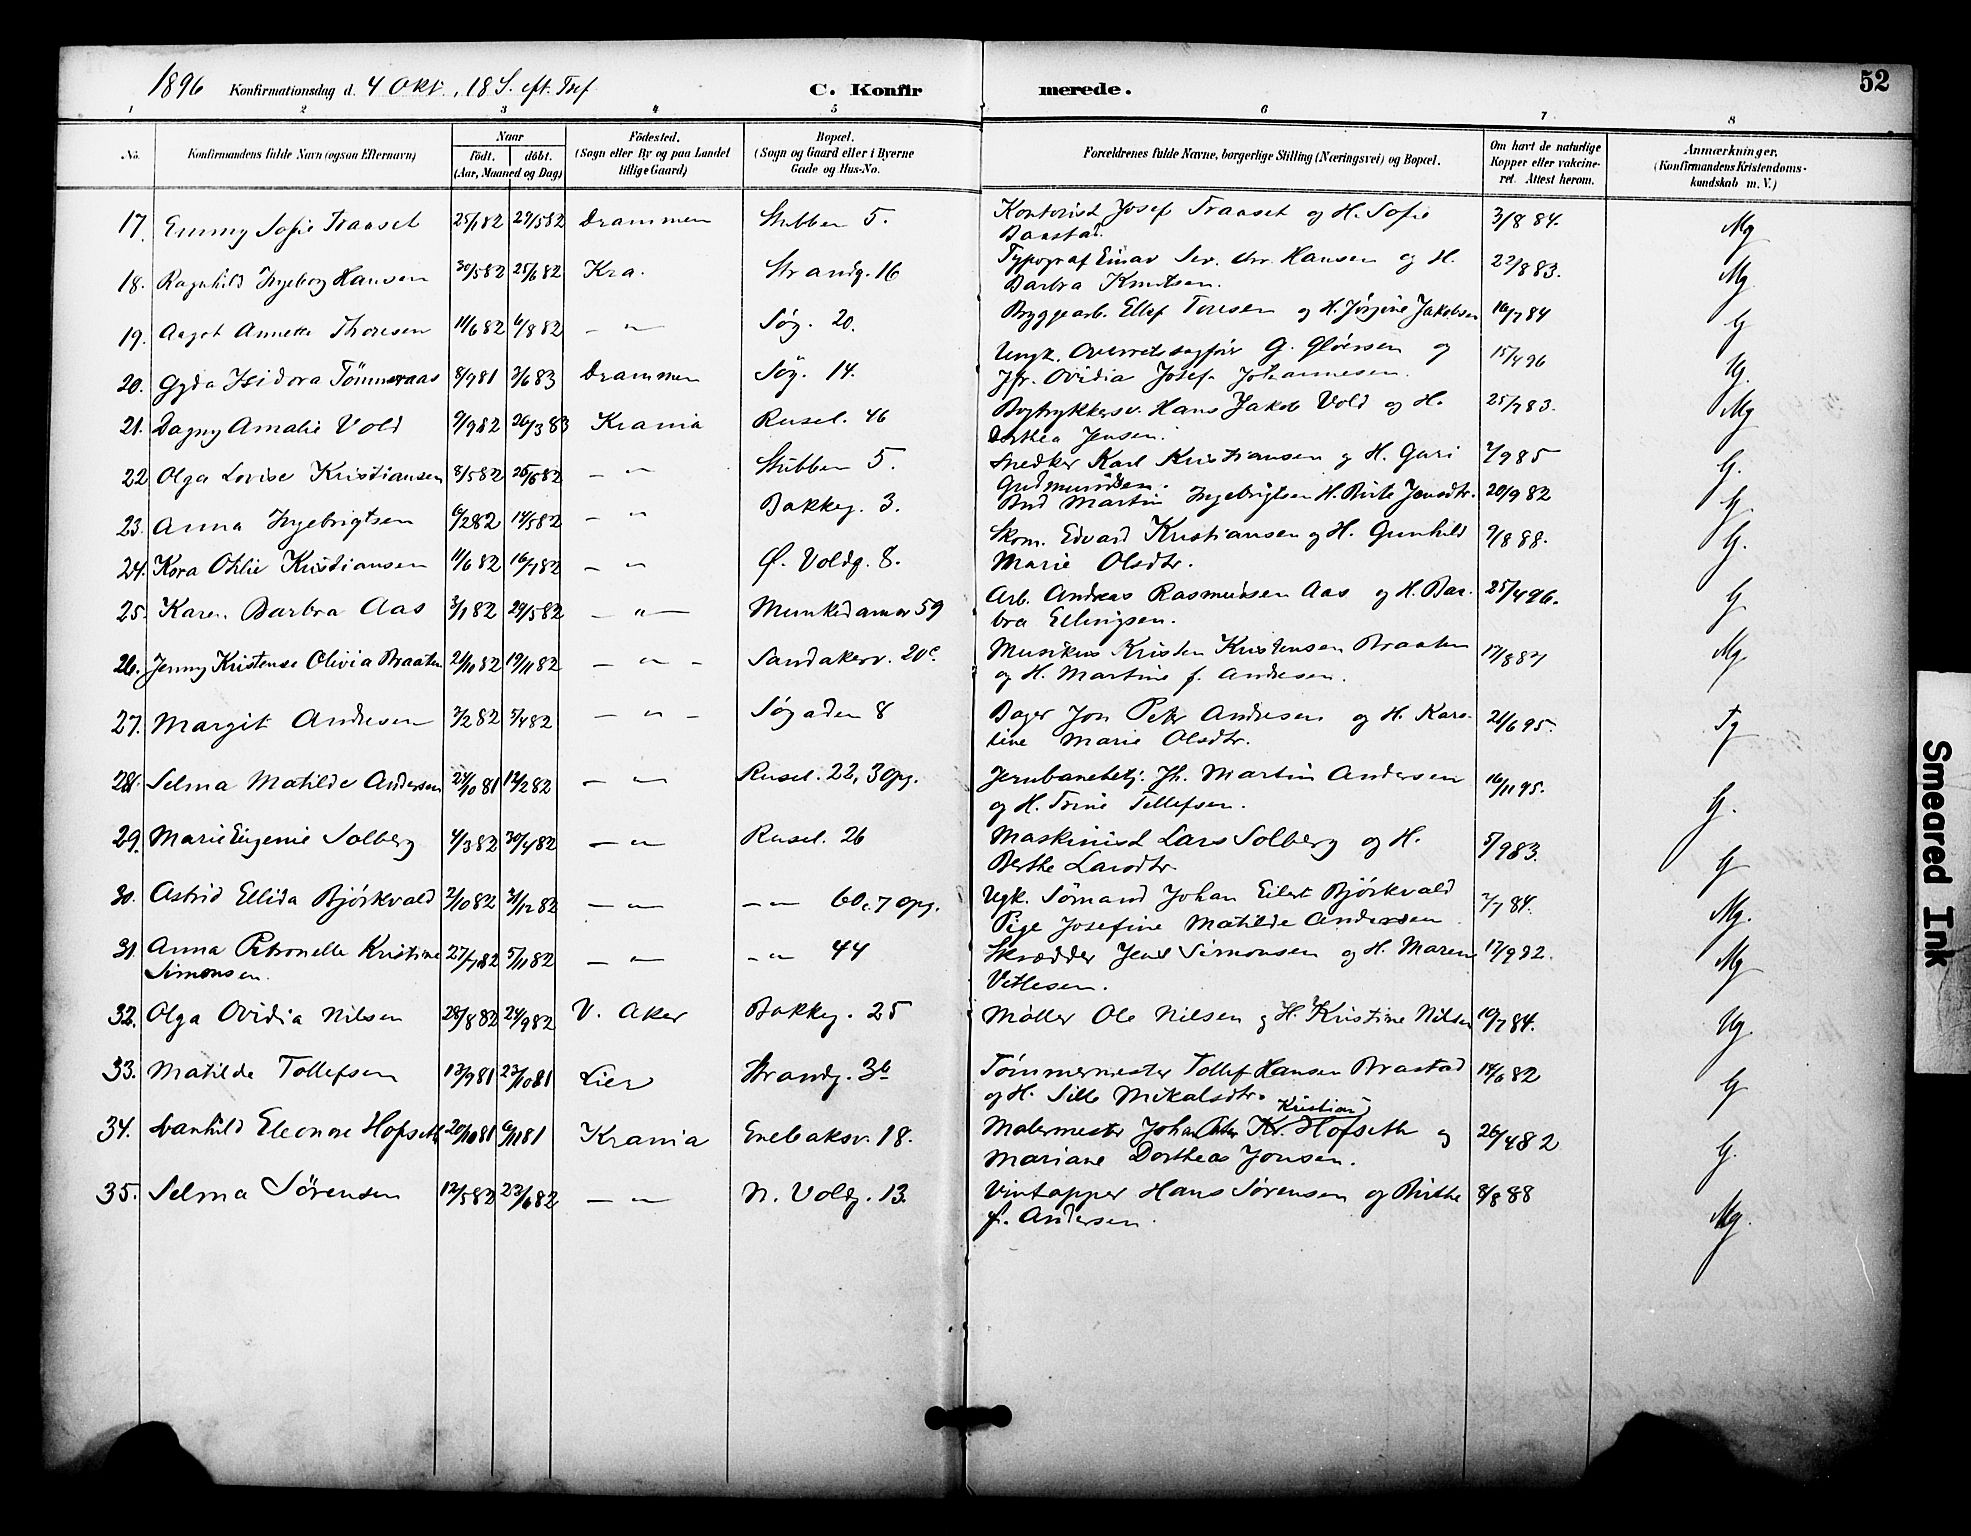 52
1896 Konfirmationsdag d. 4 Okt., 18 S. eft. Tref C. Konfir merede.
1 2 3 4 5 6 7 8
No. Konfirmandens fulde Navn (ogsaa Efternavn) Naar født. døbt. (Aar, Maaned og Dag) Födested. (Sogn eller By og paa Landet tillige Gaard) Bopæl. (Sogn og Gaard eller i Byerne Gade og Hus-No. Forældrenes fulde Navne, borgerlige Stilling (Næringsvei) og Bopæl. Om havt de naturlige Kopper eller vakcineret. Attest herom. Anmærkninger. (Konfirmandens Kristendomskundskab m. V.)
17. Emmy Sofie Traaset 25/1 82 29/5 82 Drammen Stubben 5. Kontorist Josef Traaset og H. Sofie 3/8 84. Mg
Baastad.
18. Ragnhild Ingeborg Hansen 30/5 82 25/6 82 Kra. Strandg. 16 Typograf Einar Hansen og H. 22/8 83. Mg
Barbra Knutsen.
19. Aagot Annette Thoresen 11/6 82 6/8 82 — " — Søg. 20. Bryggearb. Ellef Toresen og H. Jørgine Jakobsen 16/7 84 G
20. Gyda Isidora Tømmeraas 8/9 81 3/6 83 Drammen Søg. 14. Ungk. Overretssagfør G. Gløersen og 15/4 96 Ug.
Jfr. Ovidia Josef. Johannesen.
21. Dagny Amalie Vold 9/9 82 26/3 83 Krania Rusel. 46 Bogtrykkersv. Hans Jakob Vold og H. 25/7 83. Mg
Dorthea Jensen.
22 Olga Lovise Kristiansen 8/5 82 25/6 82 — " Stubben 5. Snedker Karl Kristiansen og H. Guri 7/9 85 G.
Gudmundsen.
23. Anna Ingebrigtsen 6/2 82 14/5 82 — " Bakkeg. 3. Bud Martin Ingebrigtsen H. Birte Jensdtr. 20/9 82 G
24. Kora Otilie Kristiansen 11/6 82 16/7 82 — " Ø. Voldg. 8. Skom. Edvard Kristiansen og H. Gunhild 9/8 88. G.
Marie Olsdtr.
25. Karen Barbra Aas 3/1 82 29/5 82 — " — Munkedamsv 59 Arb. Andreas Rasmussen Aas og H. Bar- 25/4 96. G
bra Ellingsen.
26. Jenny Kristense Olivia Braaten 21/10 82 19/11 82 — " — Sandakerv. 20c. Musikus Kristen Kristensen Braaten 17/8 87 Mg.
og H. Martine f. Andresen.
27. Margit Andresen 3/2 82 5/4 82 — " — Søgaden 8 Bager Jon Peter Andresen og H. Karo- 21/6 95. Tg
line Marie Olsdtr.
28. Selma Matilde Andersen 24/10 81 12/2 82 — " — Rusel. 22, 3 opg. Jernbanebetj. Jh. Martin Andersen 16/11 95. G.
og H. Trine Tellefsen.
29. Marie Eugenie Solberg 4/3 82 30/4 82 — " — Rusel. 26 Maskinist Lars Solberg og H. 5/9 83. G
Berthe Larsdtr.
30. Astrid Ellida Bjørkvald 2/10 82 31/12 82 — " — — " — 60, 7 opg. Ugk. Sømand Johan Eilert Bjørkvald 7/7 84. Mg.
Pige Josefine Matilde Andersen
31. Anna Petronelle Kristine 27/7 82 5/11 82 — " — — " — 44 Skrædder Jens Simonsen og H. Maren 17/9 82. Mg
Simonsen. Vetlesen.
32. Olga Ovidia Nilsen 28/8 82 24/9 82 V. Aker Bakkeg. 25 Møller Ole Nilsen og H. Kristine Nilsen 10/7 84. Ug
33. Matilde Tollefsen 13/9 81 23/10 81 Lier Strandg. 3b Tømmermester Tollef Hansen Brastad 14/6 82 G
og H. Sille Mikalsdtr.
34. Svanhild Eleonore Hofseth 20/10 81 6/11 81 Krania Enebaksv. 18. Malermester Johan Peter Kr. Kristian Hofseth og 26/4 82 G.
Mariane Dorthea Jonsen.
35. Selma Sørensen 12/5 82 23/6 82 — " — N. Voldg. 13. Vintapper Hans Sørensen og Birthe 8/8 88 Mg.
f. Andersen.
Smeared Ink